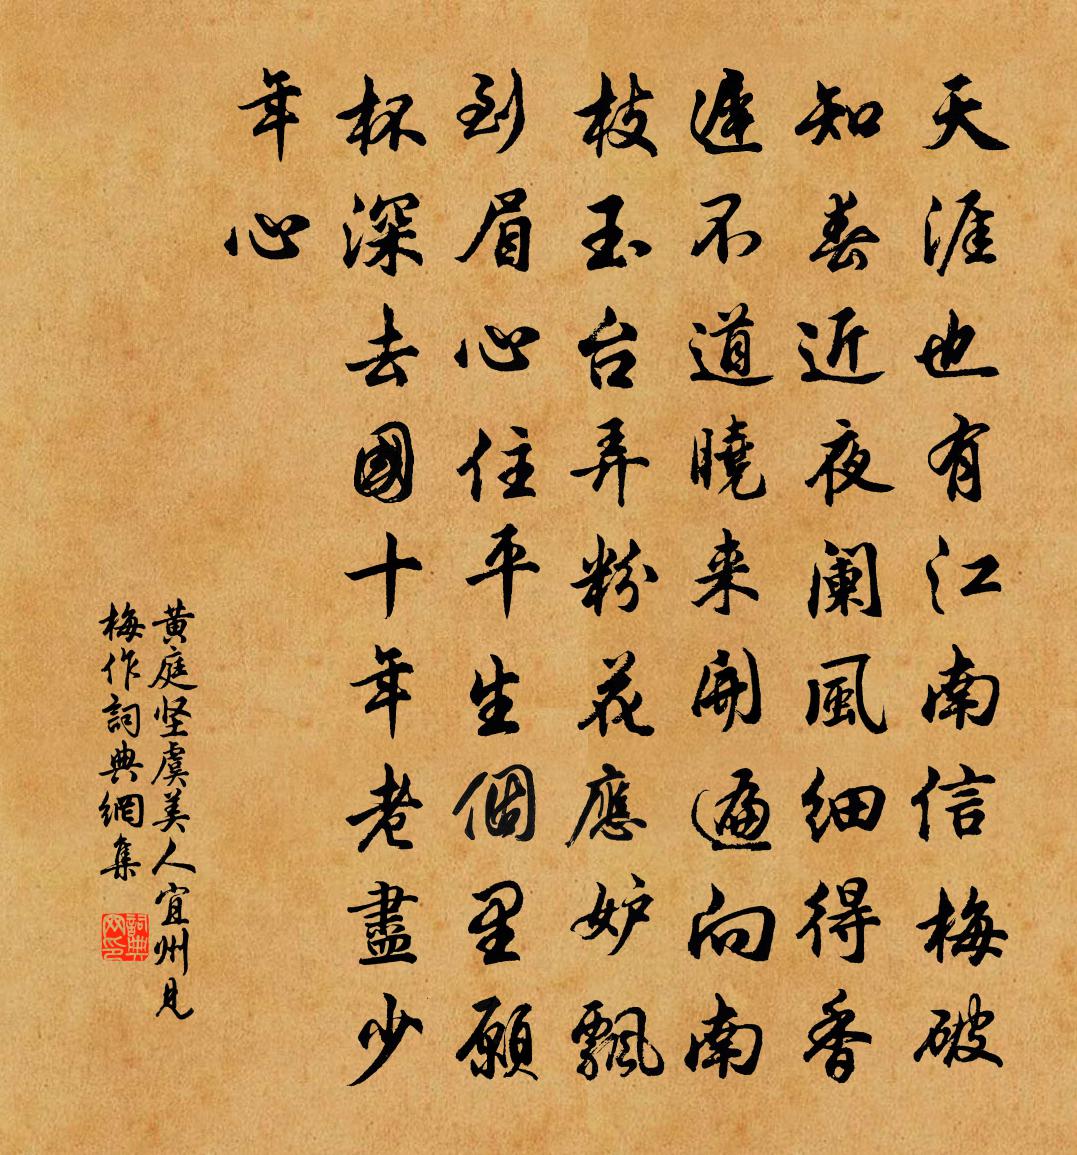 天涯也有江南信梅破
知春近夜阑風细得香
遲不道曉来開遍向南
枝玉台弄粉花應妒飄
到眉心住平生個里願
杯深去國十年老盡少
年心
黄庭坚虞美人宜州見
梅作詞典網集
詞典网印